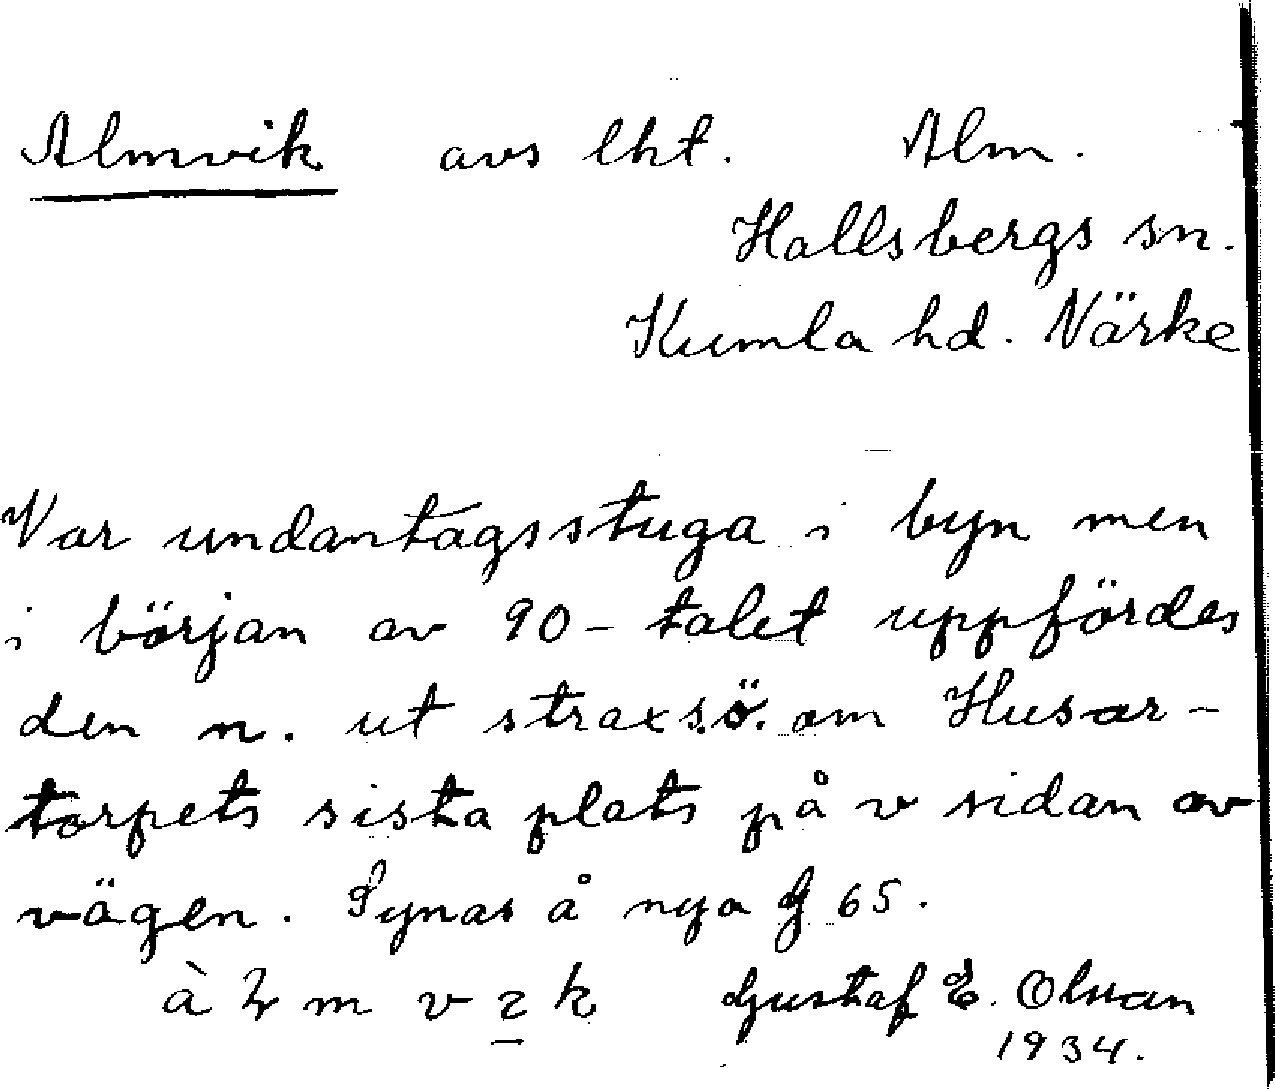 Almvik avs lht. Alm.
Hallsbergs sn.
Kumla hd. Närke
Var undantagsstuga i byn men
i början av 90-talet uppfördes
den n. ut strax s.ö. om Husar-
torpets sista plats på v sidan av
vägen. Synas å nya G 65.
Gustaf E. Olsson
1934.